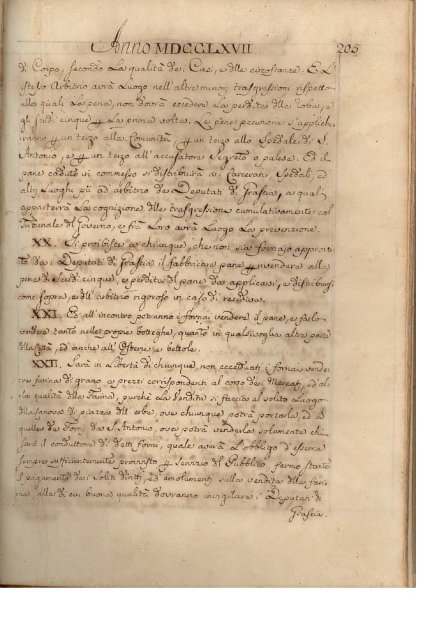 Anno MDCCLXVII 205
di Corpo, secondo la qualità dei Casi, e dlle circostanze. E l'i-
stesso Arbitrio avrà luogo nell'altre minori trasgressioni rispetto
alle quali la pena, non dovrà eccedere la perdita dlla roba, e
gli scudi cinque la prima volta. Le pene pecuniarie s'appliche-
ranno un terzo alla Comunità, un terzo allo Spedale di S.
Antonio, e un terzo all'accusatore segreto o palese. Ed il
pane caduto in commesso si distribuirà a Carcerati, Spedali, ed
altri Luoghi pii ad arbitrio dei Deputati di Grascia, a quali
apparterrà la cognizione dlle trasgressioni cumulativamente col
Tribunale di Governo, e frà loro avrà luogo la prevenzione.
XX. Si proibisce a chiunque, che non sia fornajo approva-
to dai Deputati di Grascia il fabbricare pane vendere alla
pena di Scudi cinque, e perdita del pane da applicarsi, e distribuirsi
come sopra, e dll'arbitrio rigoroso in caso di recidiva.
XXI. E all'incontro potranno i fornai vendere il pane, e farlo
vendere tanto nelle proprie botteghe, quanto in qualsivoglia altra parte
dlla Città, ed anche all'Osterie, e bettole.
XXII. Sarà in libertà di chiunque, non eccettuati i fornai vende-
re farina di grano a prezzi corrispondenti al corso dei Mercati, ed al-
la qualità dlla farina, purché la vendita si faccia al solito Luogo
dlla nuova piazza dll'erbe, ove chiunque potrà portarla, ed a
quella dei forni da S. Antonio, ove potrà venderla solamente chi
sarà il conduttore di detti forni, quale avrà l'obbligo d'esserne
sempre sufficientemente provvisto servizio del Pubblico, fermo stante
il pagamento dei soliti diritti, ed emolumenti sulla vendita dlla fari-
na, alla di cui buona qualità dovranno invigilare i Deputati di
Grascia